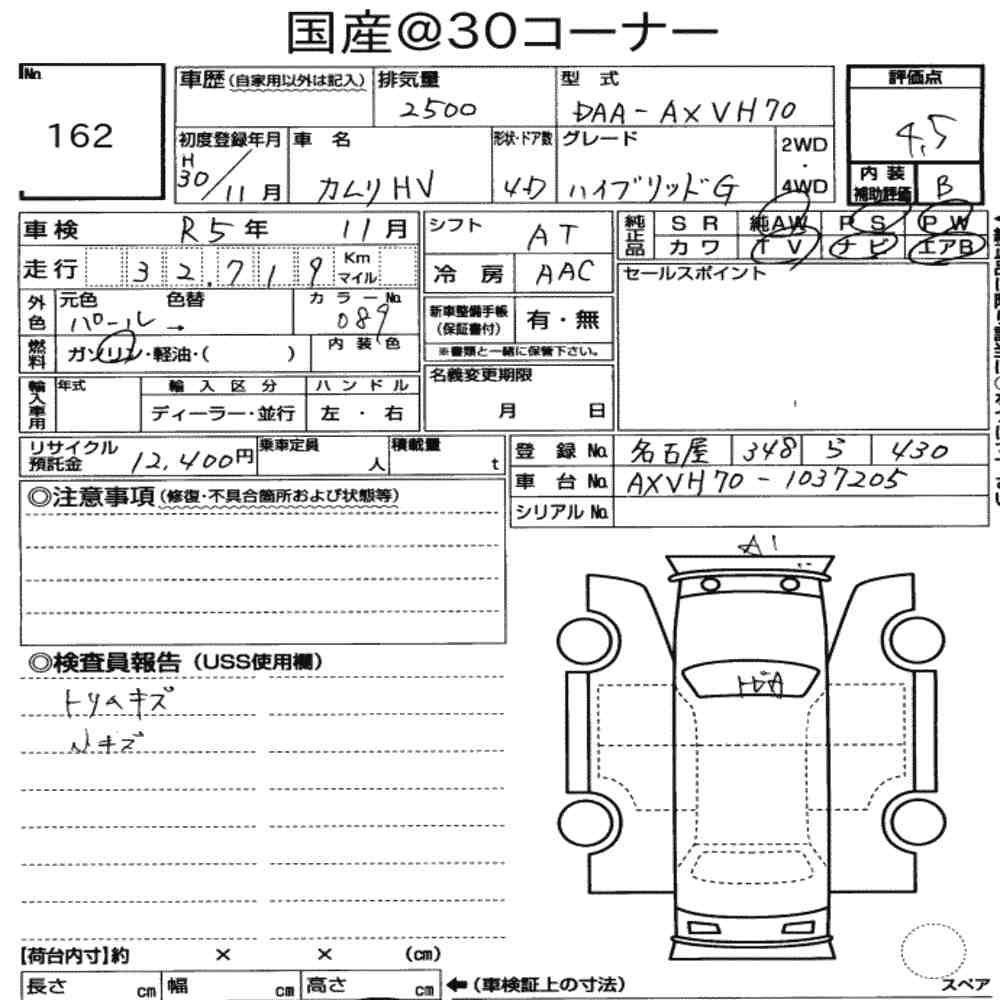 国産@30コーナー
No.
162
車歴 (自家用以外は記入)
排気量
2500
型 式
DAA-AXVH70
評価点
4.5
初度登録年月
H
30/11月
車 名
カムリHV
形状・ドア数
4D
グレード
ハイブリッドG
2WD
・
4WD
内装
補助評価
B
車検
R5年 11月
シフト
AT
純正品
SR 純AW PS PW
カワ TV ナビ エアB
走行
32,719
Km
マイル
冷房
AAC
セールスポイント
外色
元色
パール→
色替
カラーNo.
089
新車整備手帳
(保証書付)
有・無
※書類と一緒に保管下さい。
燃料
ガソリン・軽油・( )
内装色
輸入車用
年式
輸入区分
ディーラー・並行
ハンドル
左 ・ 右
名義変更期限
月 日
リサイクル
預託金
12,400円
乗車定員
人
積載量
t
登 録 No.
名古屋 348 ら 430
車 台 No.
AXVH70-1037205
シリアル No.
◎注意事項(修復・不具合箇所および状態等)
◎検査員報告(USS使用欄)
A1
【荷台内寸】約 × × (cm)
長さ cm 幅 cm 高さ cm
←(車検証上の寸法)
スペア